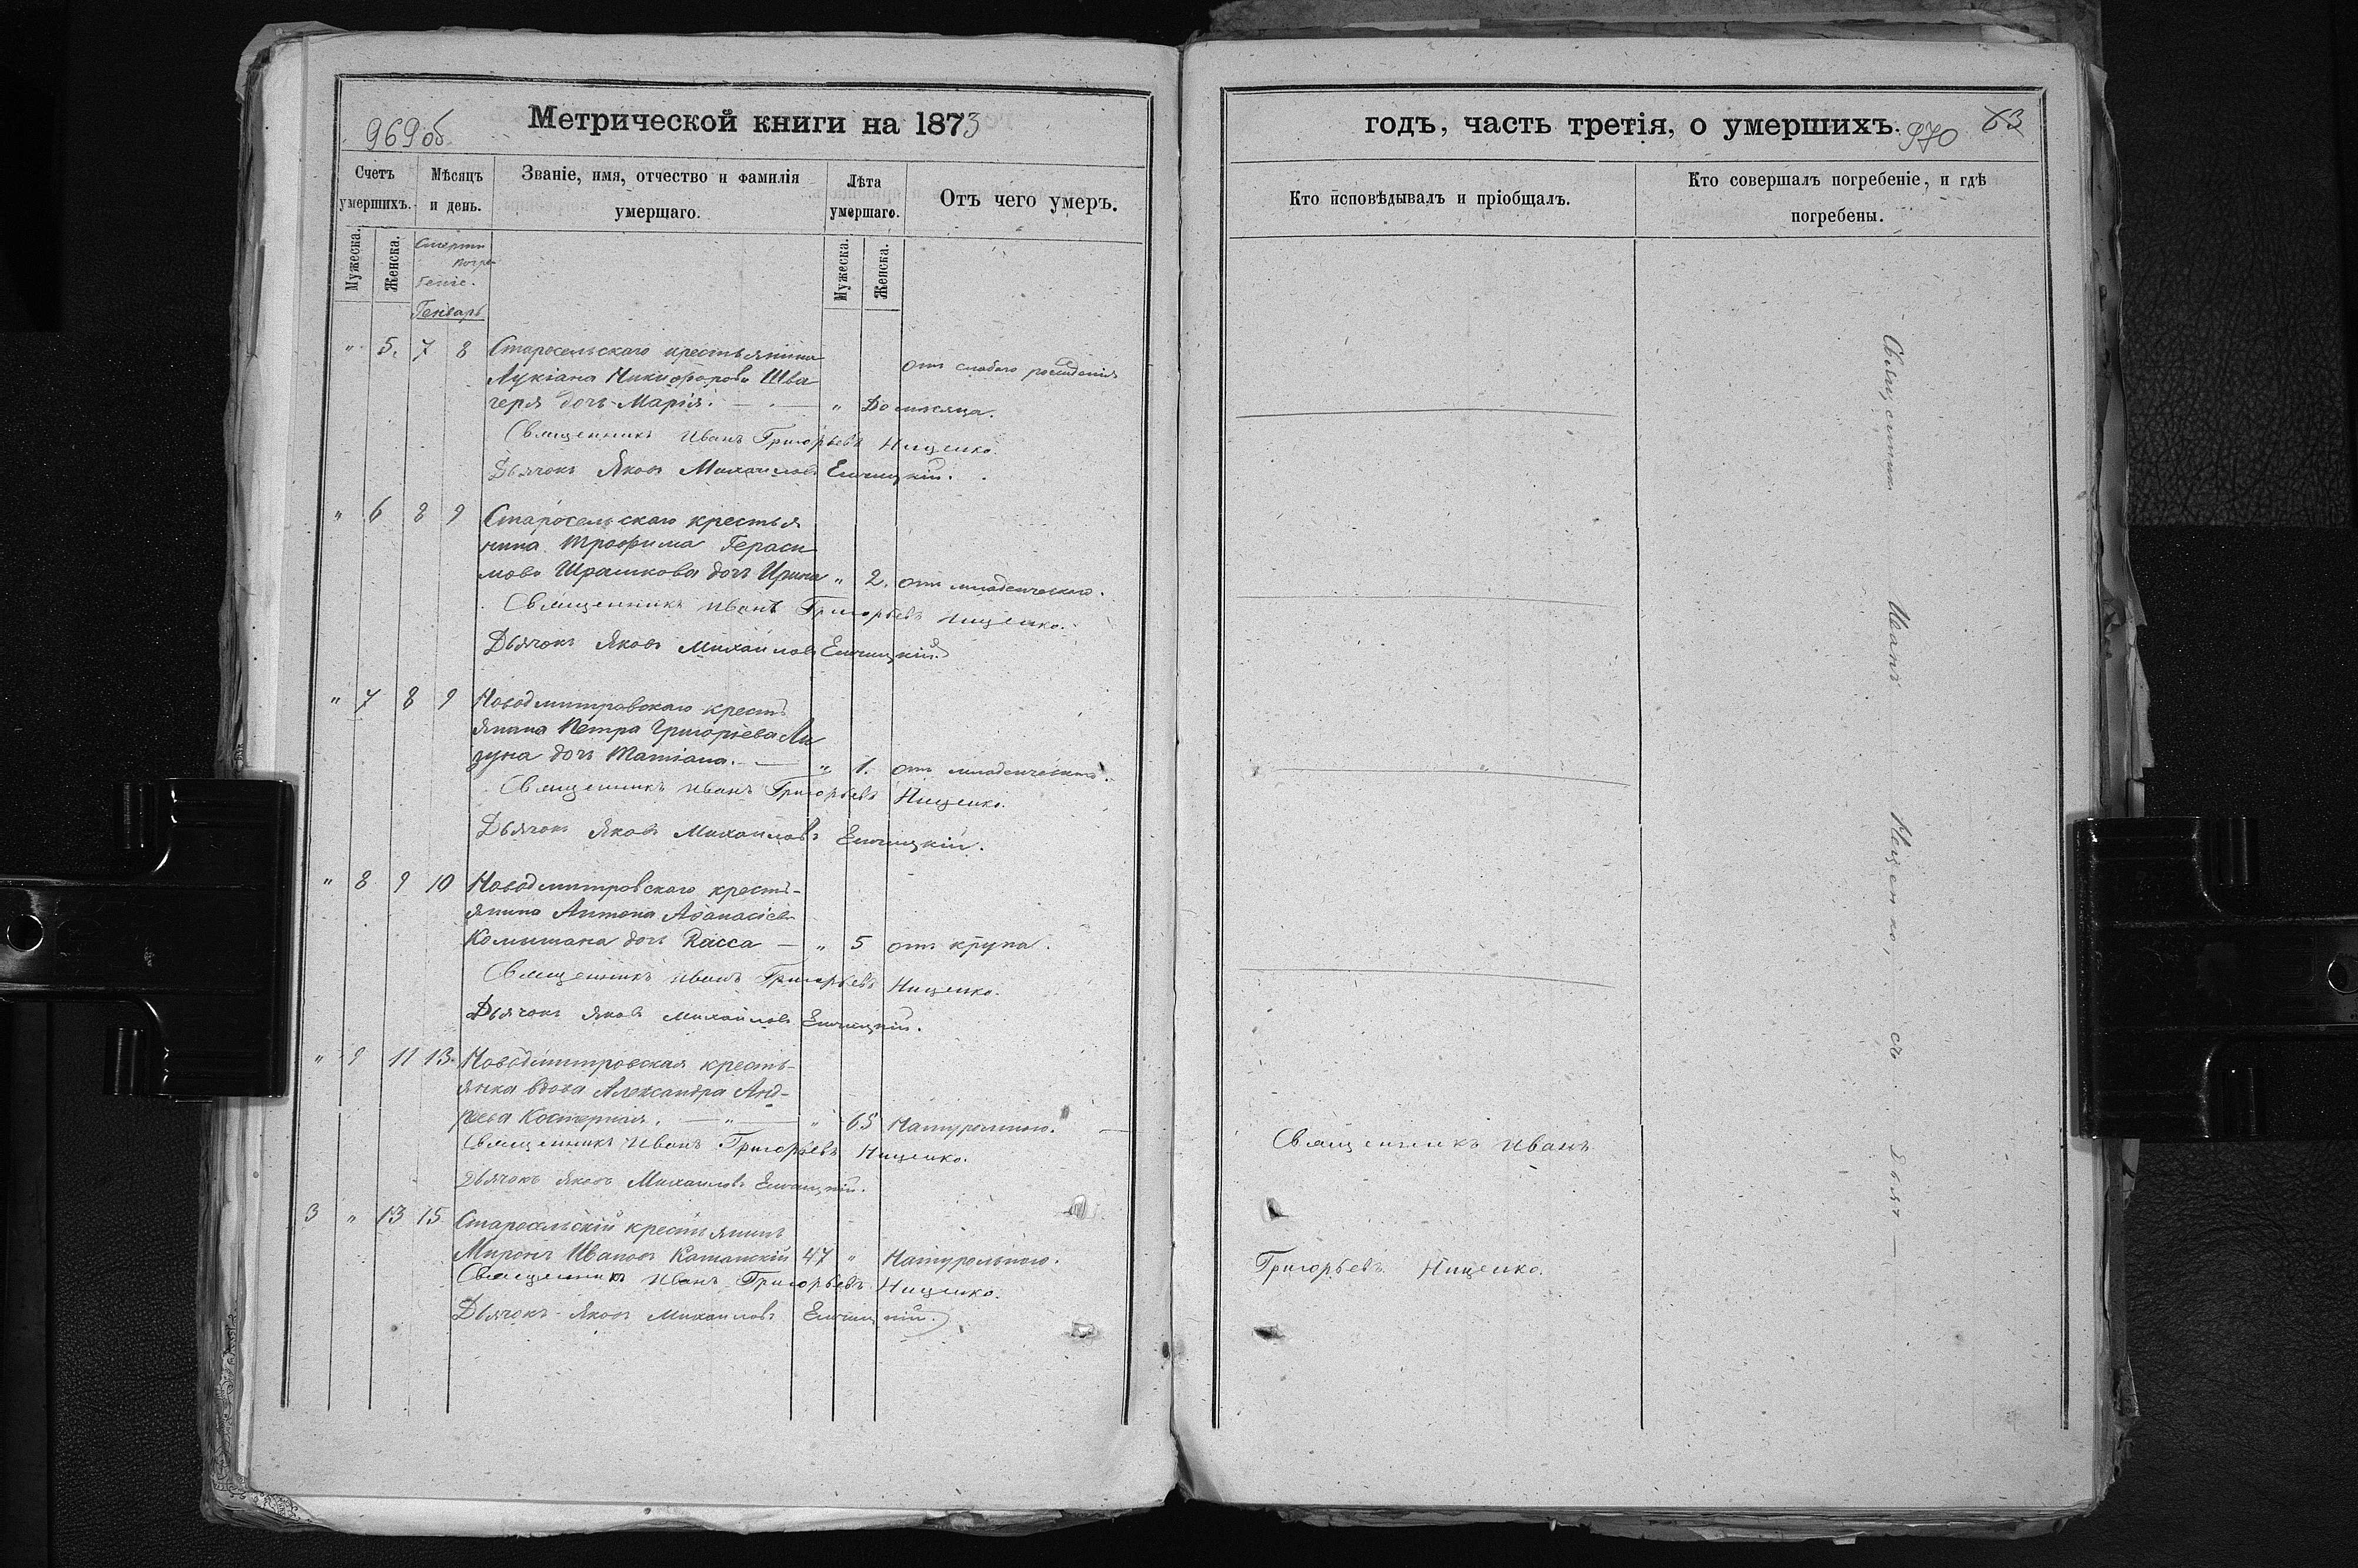 Метрической книги на 1873
969 об
Счетъ умершихъ.
Мѣсяцъ и день.
Званіе, имя, отчество и фамилія умершаго.
Лѣта умершаго.
Отъ чего умеръ.
Мужеска.
Женска.
Смерти
погре-
бенiе.
Генварь
Мужеска.
Женска.
" 5. 7 8 Старосельскаго крестьянина
Лукіана Никифорова Шва
геря дочь Марія. — " До мѣсяца. отъ слабаго рожденія
Священникъ Иванъ Григорьевъ Нищенко.
Дьячокъ Яковъ Михаиловъ
" 6 8 9 Старосельскаго крестья
нина Трофима Гераси
мова Шрамкова дочь Ирина " 2. отъ младенческаго.
Священникъ Иванъ Григорьевъ Нищенко.
Дьячокъ Яковъ Михаиловъ
" 7 8 9 Новодмитровскаго кресть
янина Петра Григоріева Ли
зуна дочь Татіана. — " 1. отъ младенческаго.
Священникъ Иванъ Григорьевъ Нищенко.
Дьячокъ Яковъ Михаиловъ
" 8 9 10 Новодмитровскаго кресть-
янина Антона Аѳанасіева
дочь Васса — " 5 отъ крупа.
Священникъ Иванъ Григорьевъ Нищенко.
Дьячокъ Яковъ Михаиловъ
" 9 11 13 Новодмитровская кресть-
янка вдова Александра Анд-
реева — " — " 65 Натуральною.
Священникъ Иванъ Григорьевъ Нищенко.
Дьячокъ Яковъ Михаиловъ
3 " 13 15 Старосельскій крестьянинъ
Миронъ Ивановъ Катанскій 47 " Натуральною.
Священникъ Иванъ Григорьевъ Нищенко.
Дьячокъ Яковъ Михаиловъ
годъ, часть третія, о умершихъ.
970
63
Кто исповѣдывалъ и пріобщалъ.
Кто совершалъ погребеніе, и гдѣ погребены.
Священникъ Иванъ
Григорьевъ Нищенко.
Священникъ Иванъ Нищенко, съ дьяч—